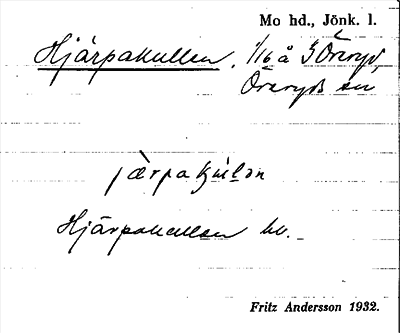 Mo hd., Jönk. l.
Hjärpakullen, 1/16 å 3 Öreryd,
Öreryds sn
jærpakulən
Hjärpakullen hv.
Fritz Andersson 1932.